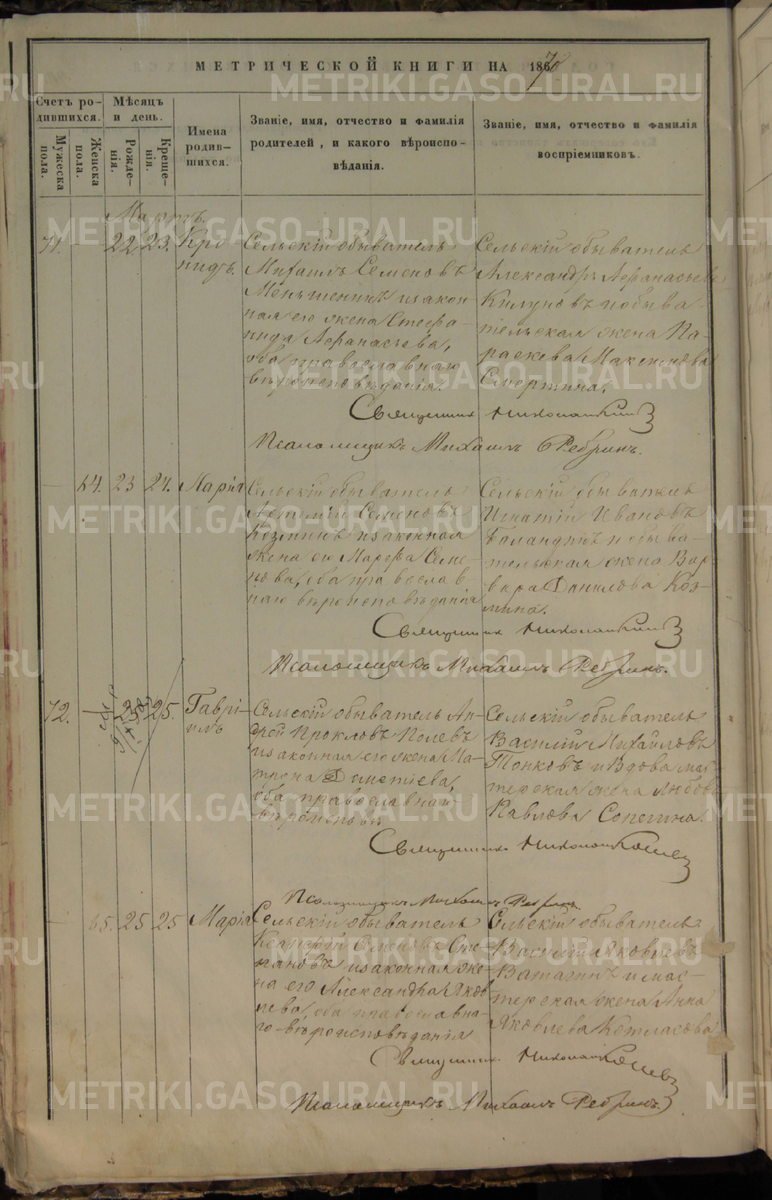 МЕТРИЧЕСКОЙ КНИГИ НА 1870
Счетъ ро-
дившихся.
Мужеска
пола.
Женска
пола.
Мѣсяцъ
и день.
Рожде-
нія.
Креще-
нія.
Имена
родив-
шихся.
Званіе, имя, отчество и фамилія
родителей, и какого вѣроиспо-
вѣданія.
Званіе, имя, отчество и фамилія
воспріемниковъ.
Мартъ.
71. - 22 23. Кро
нидъ.
Сельскій обыватель
Михаилъ Семеновъ
Меньшенинъ и закон
ная его жена Стефа
нида Афанасьева,
оба православнаго
вѣроисповѣданія.
Сельскій обыватель
Александръ Афанасьевъ
и обыва-
тельская жена Па-
раскева Максимова
Смертина.
Священникъ Николай
Псаломщикъ Михаилъ Ребринъ.
- 64. 23 24. Марія
Сельскій обыватель
Артемій Семеновъ
Козминъ и законная
жена его Марфа Семе
нова, оба православ
наго вѣроисповѣданія
Сельскій обыватель
Игнатій Ивановъ
Баландинъ и обыва-
тельская жена Вар
вара Данилова Коз-
мина.
Священникъ Николай
Псаломщикъ Михаилъ Ребринъ.
72. - 25. Гаврі-
илъ
Сельскій обыватель Ан
дрей Прокловъ Полевъ
и законная его жена Ма-
трона Дометіева,
оба православнаго
вѣроисповѣ.
Сельскій обыватель
Василій Михайловъ
Тонковъ и вдова мас
терская жена Любовь
Павлова Сопегина.
Священникъ Николай
Псаломщикъ Михаилъ Ребринъ
- 65. 25 25 Марія
Сельскій обыватель
Семеновъ
и законная же-
на его Александра Яков
лева, оба православна-
го вѣроисповѣданія
Сельскій обыватель
Василій Яковлевъ
Ватагинъ и мас-
терская жена Анна
Яковлева Котласова
Священникъ Николай
Псаломщикъ Михаилъ Ребринъ
METRIKI.GASO-URAL.RU